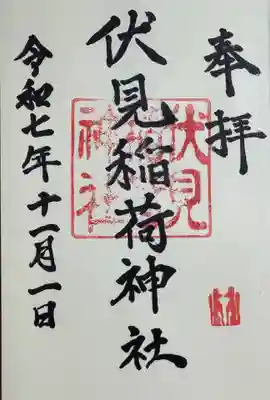 奉拝
伏見稲荷神社
伏見
神社
令和七年十一月一日